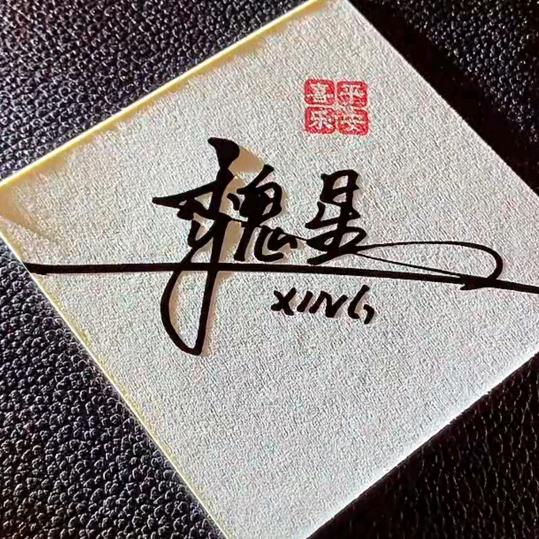 平安
喜乐
魏星
XING